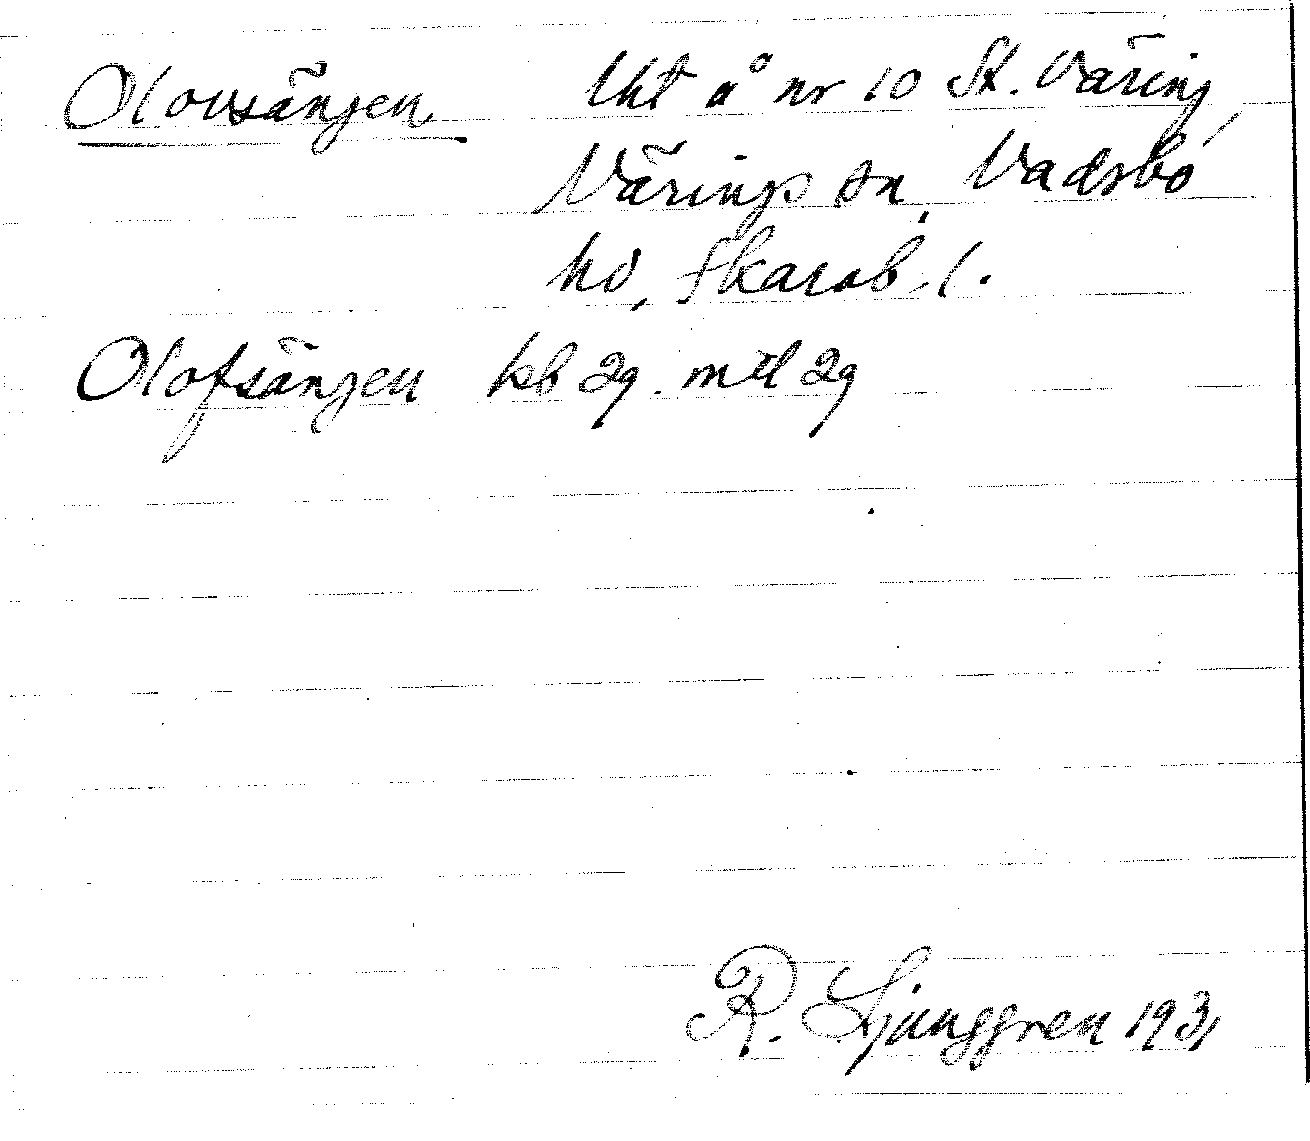 Olovsängen Uht å nr 10 St. Väring,
Värings sn, Vadsbo
hd, Skarab. l.
Olofsängen kb 29. mtl 29
R. Ljunggren 1931